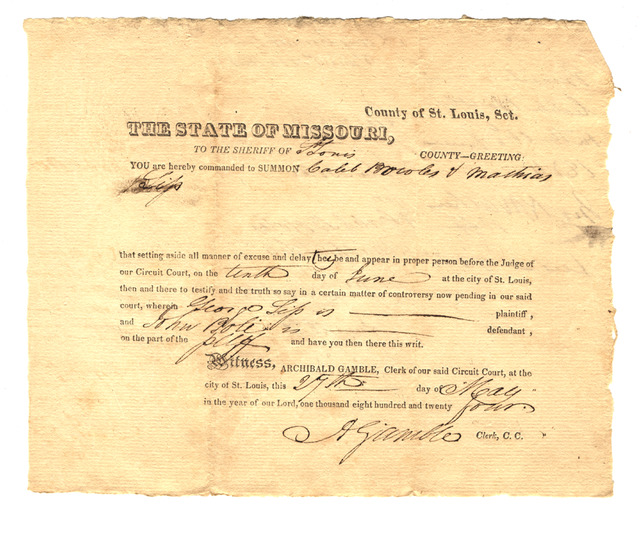 County of St. Louis, Sct.
THE STATE OF MISSOURI,
TO THE SHERIFF OF St Louis COUNTY—GREETING:
YOU are hereby commanded to SUMMON Caleb Bowles & Mathias
that setting aside all manner of excuse and delay they be and appear in proper person before the Judge of
our Circuit Court, on the tenth day of June at the city of St. Louis,
then and there to testify and the truth so say in a certain matter of controversy now pending in our said
court, wherein George is plaintiff,
and John is defendant,
on the part of the plff and have you then there this writ.
Witness, ARCHIBALD GAMBLE, Clerk of our said Circuit Court, at the
city of St. Louis, this 27th day of May
in the year of our Lord, one thousand eight hundred and twenty four.
A Gamble Clerk, C. C.